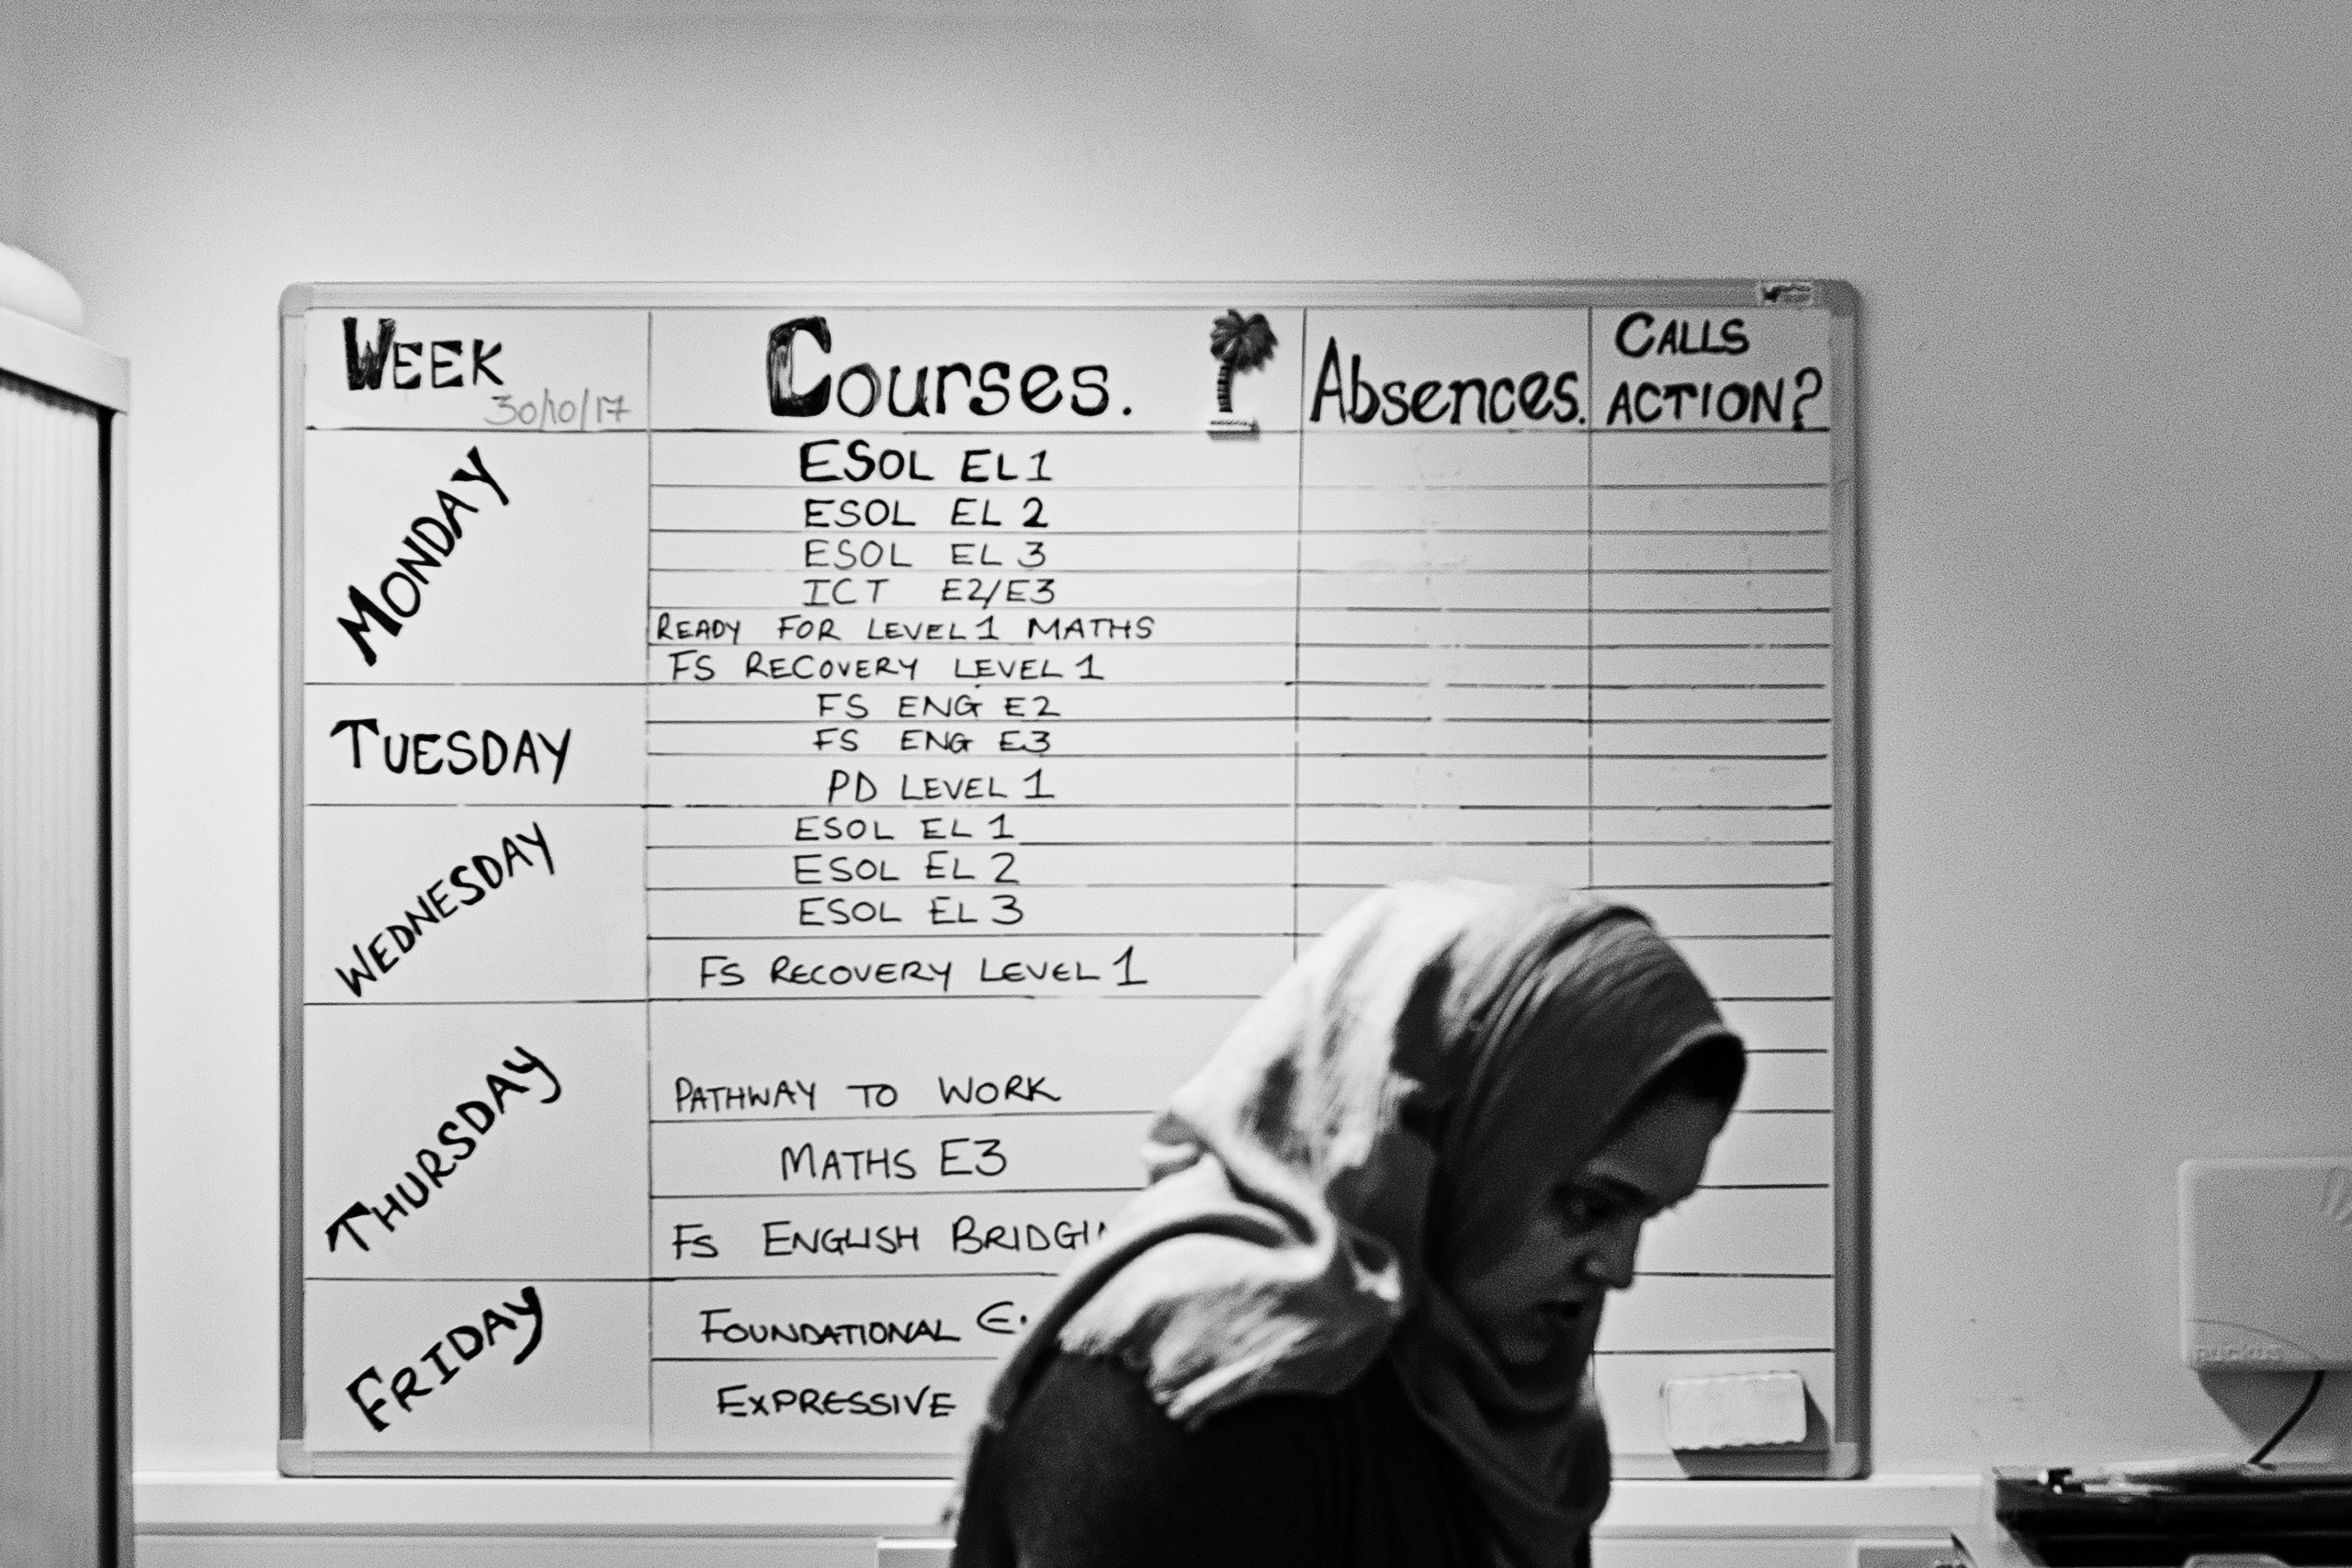 WEEK
30/10/17
Courses.
Absences.
CALLS
ACTION?
MONDAY
ESOL EL1
ESOL EL 2
ESOL EL 3
ICT E2/E3
READY FOR LEVEL 1 MATHS
FS RECOVERY LEVEL 1
TUESDAY
FS ENG E2
FS ENG E3
PD LEVEL 1
WEDNESDAY
ESOL EL 1
ESOL EL 2
ESOL EL 3
FS RECOVERY LEVEL 1
THURSDAY
PATHWAY TO WORK
MATHS E3
FS ENGLISH
FRIDAY
FOUNDATIONAL
EXPRESSIVE
ruckus